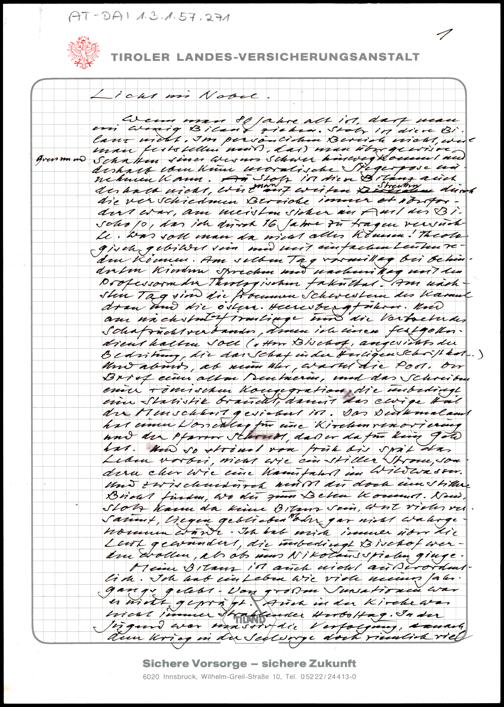 AT-DA 1.3.1.57.271
1
TIROLER LANDES-VERSICHERUNGSANSTALT
Licht im Nebel.
Wenn man 80 Jahre alt ist, darf man
ein wenig Bilanz ziehen. Stolz ist diese Bi-
lanz nicht. Im persönlichen Bereich nicht, weil
man feststellen muß, daß man über gewisse
Schatten seines Wesens schwer hinwegkommt und
deshalb auch keine moralische Siegerpose ein-
nehmen kann. Stolz ist die Bilanz auch
deshalb nicht, weil man mit weiten durch
die verschiedenen Bereiche immer
dert war, am meisten sicher im Amt des Bi-
schofs, das ich durch 16 Jahre zu tragen versuch-
te. Was soll man da nicht alles können! Theolo-
gisch gebildet sein und mit einfachen Leuten re-
den können. Am selben Tag vormittag bei behin-
derten Kindern sprechen und nachmittag mit den
Professoren der Theologischen Fakultät. Am näch-
sten Tag sind die Schwestern des Carmel
dran und die österr. Heeresbergführer. Und
am nächsten und die Vertreter des
Schafzuchtverbandes, denen ich einen Festgottes-
dienst halten soll (Herr Bischof, angesichts der
Bedeutung, die das Schaf in der Heiligen Schrift hat...)
Und abends, ab neun Uhr, wartet die Post. Der
Brief einer alten Rentnerin, und das Schreiben
einer römischen Kongregation, die unbedingt
eine Statistik braucht, damit das ewige Heil
der Menschheit gesichert ist. Das Denkmalamt
hat einen Vorschlag für eine Kirchenrenovierung
und der Pfarrer schreibt, daß er dafür kein Geld
hat. Und so strömt von früh bis spät das
Leben vorbei, nicht wie ein stiller Strom son-
dern eher wie eine Kanufahrt im Wildwasser.
Und zwischendurch mußt du doch eine stille
Bucht finden, wo du zum Beten kommst. Nein,
stolz kann da keine Bilanz sein, weil vieles ver-
säumt, liegen geblieben oder gar nicht wahrge-
nommen wurde. Ich hab mich immer über die
Leut gewundert, die unbedingt Bischof wer-
den wollen, als ob ums Nikolausspielen ginge.
Meine Bilanz ist auch nicht außerordent-
lich. Ich hab ein Leben wie viele meines Jahr-
gangs gelebt. Von großen Sensationen war
es nicht geprägt. Auch in der Kirche war
nicht immer strahlender Werbetag. In der
Jugend war die Verfolgung, danach
dem Krieg in der Seelsorge doch ziemlich viel
TIROLER LAND
Sichere Vorsorge – sichere Zukunft
6020 Innsbruck, Wilhelm-Greil-Straße 10, Tel. 05222/24413-0